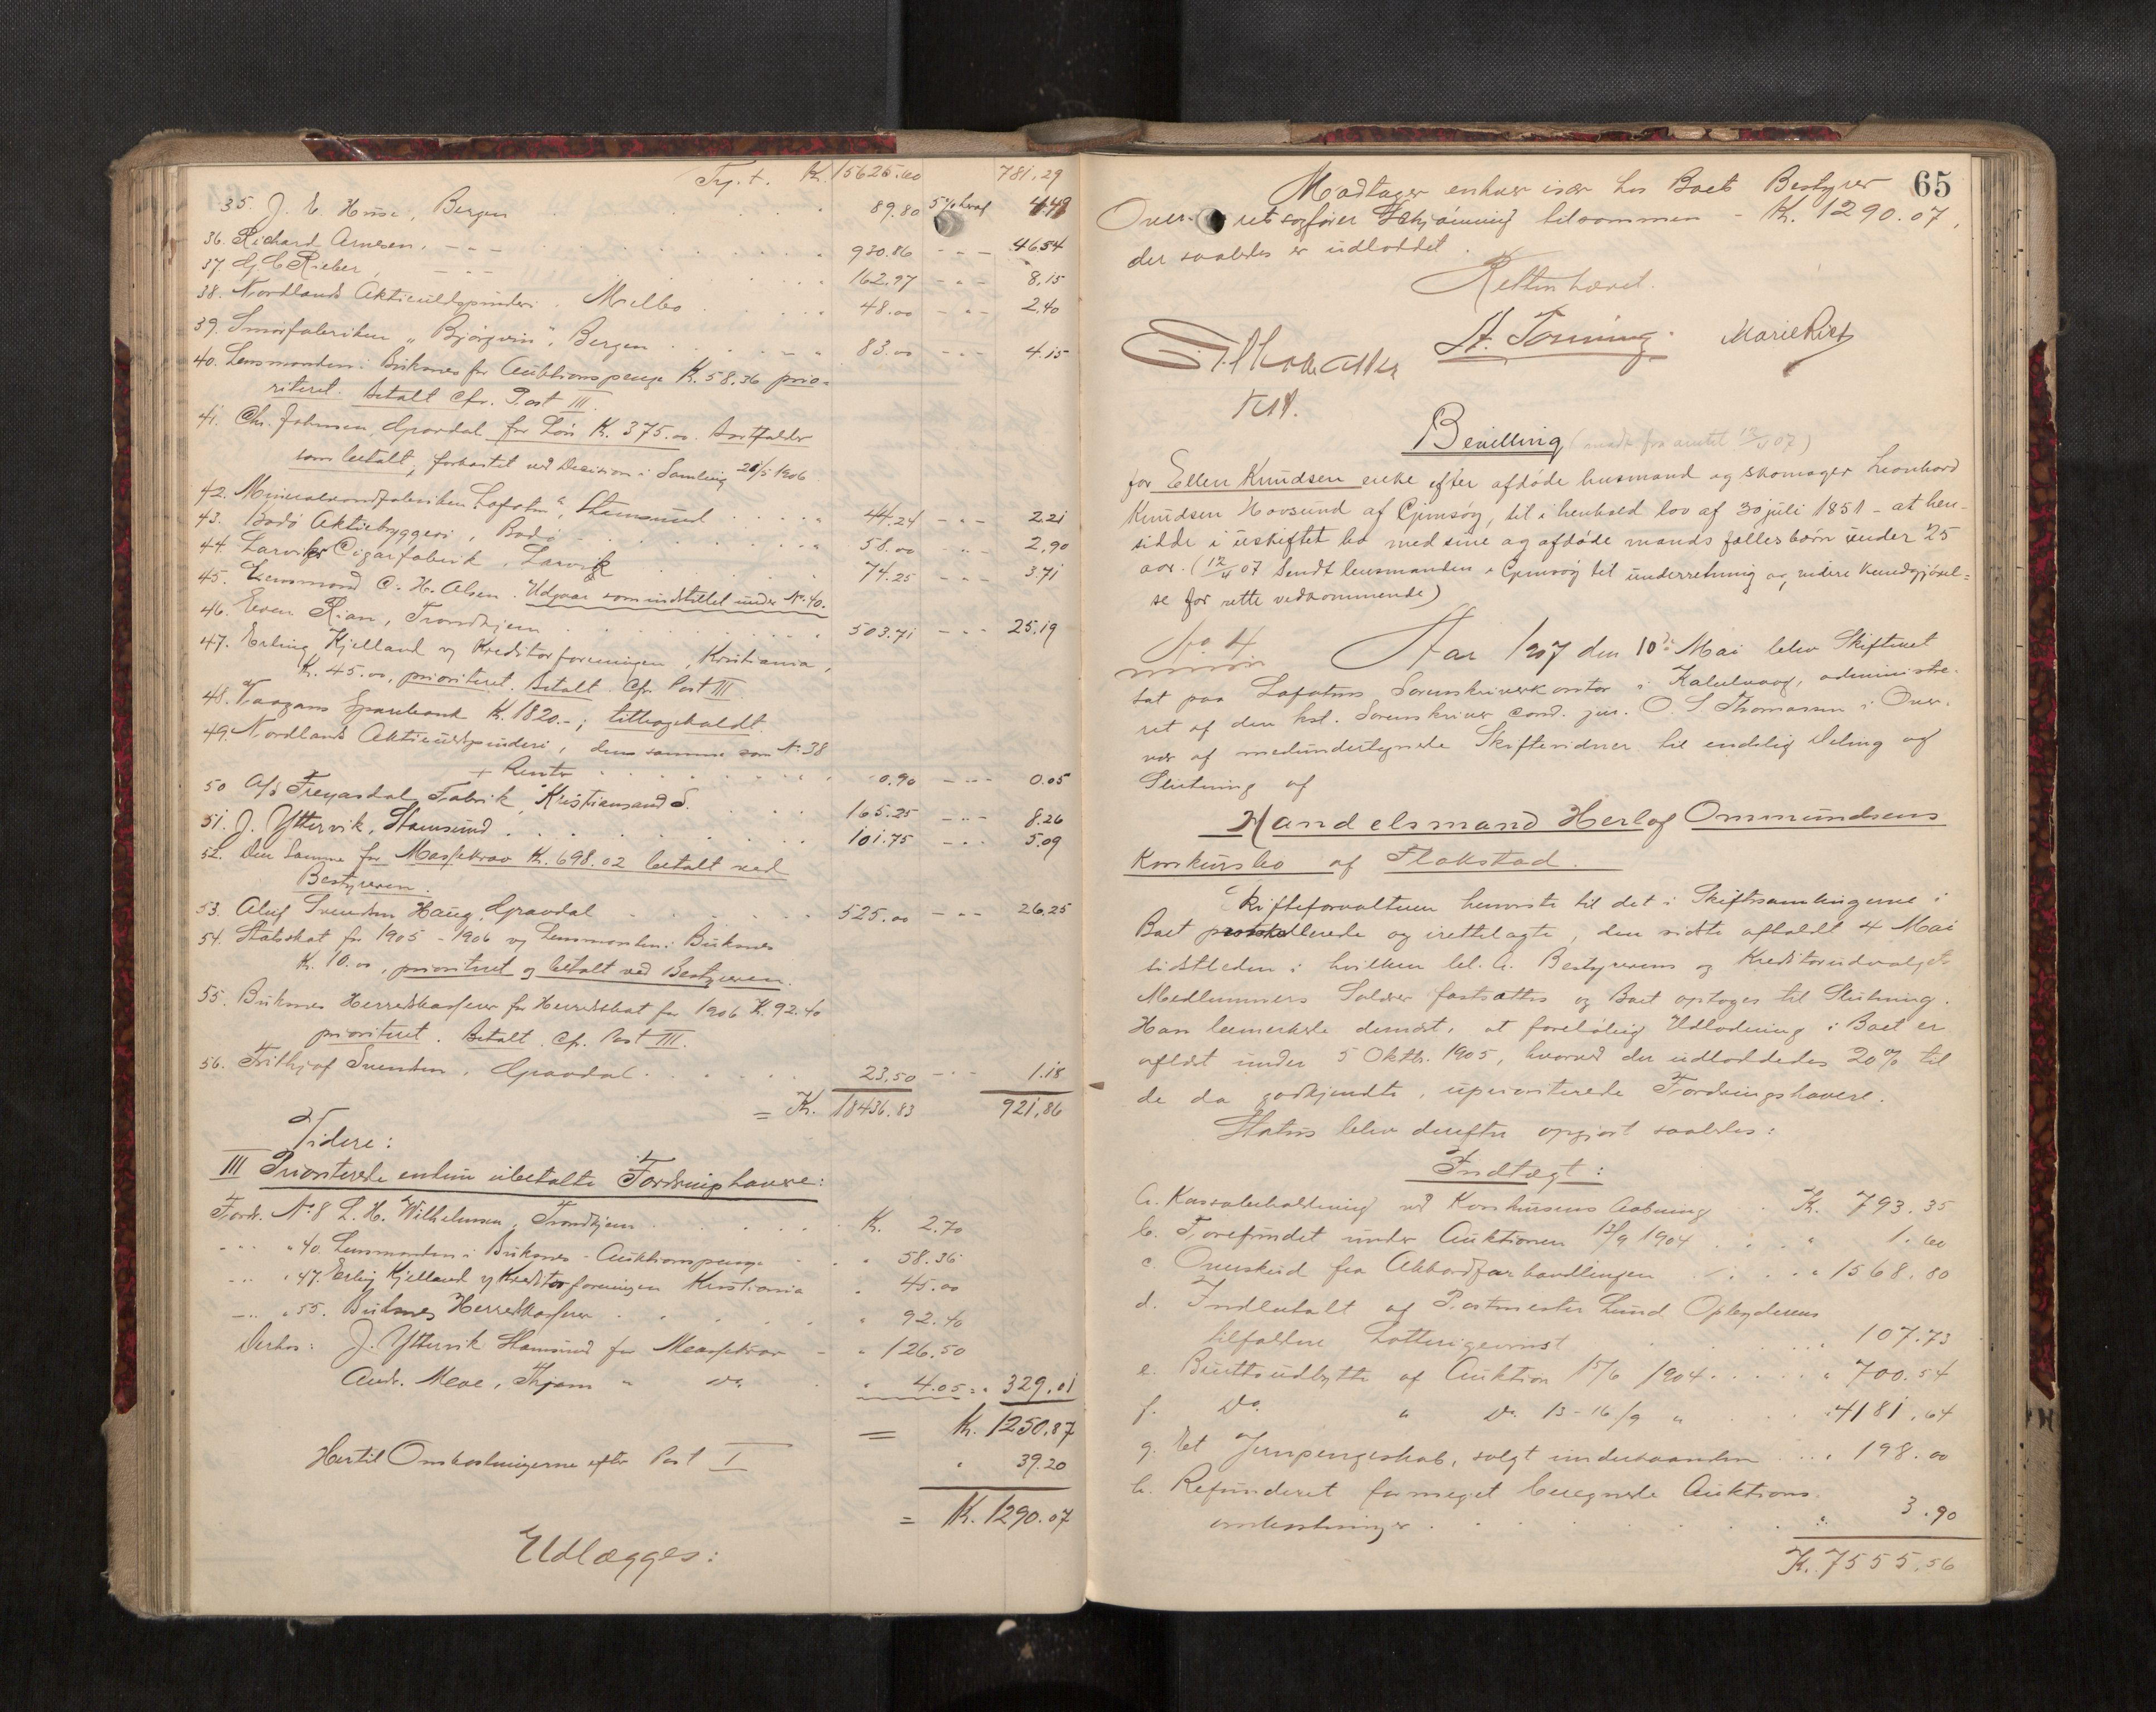 Trp.t. Kr. 15625.60 781,29
35. J. E. Huse, Bergen 89.80 5% heraf 4.49
36. Richard Arnesen, - - - 930.86 - " - 46.54
37. G. C. Rieber, - - - 162.97 - " - 8,15
38. Nordlands Aktieuldspinderi, Melbo 48.00 - " - 2,40
39. Smørfabriken "Bjørgvin", Bergen 83.00 - " - 4.15
40. Lensmanden i Buksnes for Auktionspenge K. 58.36 prio-
riteret. Betalt cfr. Post III.
41. Chr. Johnsen, Gravdal for Løn K. 375.00. Bortfalder
som betalt, forkastet ved Decision i Samling 26/5 1906
42. Mineralvandfabriken "Lofoten", Stamsund 44.24 - " - 2.21
43. Bodø Aktiebryggeri, Bodø 58.00 - " - 2,90
44. Larviks Cigarfabrik, Larvik 74.25 - " - 3.71
45. Lensmand C. H. Olsen. Udgaar som indstillet under No. 40.
46. Even Rian, Trondhjem 503.71 - " - 25.19
47. Erling Kjelland v/ Kreditorforeningen, Kristiania,
K. 45.00, prioriteret. Betalt. Cfr. Post III
48. Vaagans Sparebank K. 1820.-; tilbageholdt.
49. Nordlands Aktieuldspinderi, den samme som No. 38
+ Renter 0.90 - " - 0.05
50 A/S Freyasdal Fabrik, Kristiansand S. 165.25 - " - 8.26
51. J. Yttervik, Stamsund 101.75 - " - 5.09
52. Den Samme for Massekrav K. 698.02 betalt ved
Bestyreren.
53. Aluf Svendsen Haug, Gravdal 525.00 - " - 26.25
54. Statsskat for 1905 - 1906 v/ Lensmanden i Buksnes
K. 10.00, prioriteret og betalt ved Bestyreren.
55. Buksnes Herredskasserer for Herredskat for 1906 K. 92.40
prioriteret. Betalt. Cfr. Post III.
56. Frithjof Svendsen, Gravdal 23,50 - " - 1.18
= Kr. 18436.83 921,86
Videre:
III Prioriterede endnu ubetalte Fordringshavere:
Fordr. No. 8 L. H. Wilhelmsen, Trondhjem K. 2.70
- " - " 40. Lensmanden i Buksnes - Auktionspenge " 58.36
- " - " 47. Erling Kjelland v/ Kreditorforeningen Kristiania " 45.00
- " - " 55. Buksnes Herredskasserer " 92.40
Derhos: J. Yttervik Stamsund for Massekrav " 126.50
Andr. Moe, Thjem " Do. " 4.05 = " 329.01
= K. 1250.87
Hertil Omkostningerne efter Post I " 39.20
= K. 1290.07
Udlægges:
65
Modtager enhver især hos Boets Bestyrer
Overretssagfører tilsammen - K. 1290.07,
der saaledes er udloddet.
Retten hævet.
H. Tønning. Marie
Kst.
Bevilling (medt fra amtet 12/4 07)
for Ellen Knudsen enke efter afdøde husmand og skomager Leonhard
Knudsen Hovsund af Gimsøy, til i henhold lov af 30 juli 1851 - at hen-
sidde i uskiftet bo med sine og afdøde mands fællesbørn under 25
aar. (12/4 07 Sendt lensmanden i Gimsøy til underretning og videre kundgjørel-
se for rette vedkommende)
No 4
Aar 1907 den 10de Mai blev Skifteret
sat paa Lofotens Sorenskriverkontor i Kabelvaag, administre-
ret af den kst. Sorenskriver cand. jur. O. S. Thomassen i Over-
vær af medundertegnede Skiftevidner til endelig Deling og
Slutning af
Handelsmand Herlof Ommundsens
Konkursbo af Flakstad.
Skifteforvalteren henviste til det i Skiftesamlingerne i
Boet protokollerede og irettelagte, den sidste afholdt 4 Mai
sidstleden i hvilken bl. a. Bestyrerens og Kreditorudvalgets
Medlemmers Salærer fastsattes og Boet optoges til Slutning.
Han bemerkede dernæst, at foreløbig Udlodning i Boet er
afholdt under 5 Oktbr. 1905, hvorved der udloddedes 20% til
de da godkjendte, uprioriterede Fordringshavere.
Status blev derefter opgjort saaledes:
Indtægt:
a. Kassabeholdning ved Konkursens Aabning Kr. 793.35
b. Forefundet under Auktionen 12/9 1904 " 1.60
c. Overskud fra Akkordforhandlingen " 1568.80
d. Indbetalt af Postmester Lund Opbyderens
tilfaldne Lotterigevinst " 107.73
e. Bruttoudbytte af Auktion 15/6 1904 " 700.54
f. Do. " Do. 13 - 16/9 " " 4181.64
g. Et Jernpengeskab, solgt underhaanden " 198.00
h. Refunderet formeget beregnede Auktions-
omkostninger " 3.90
K. 7555.56